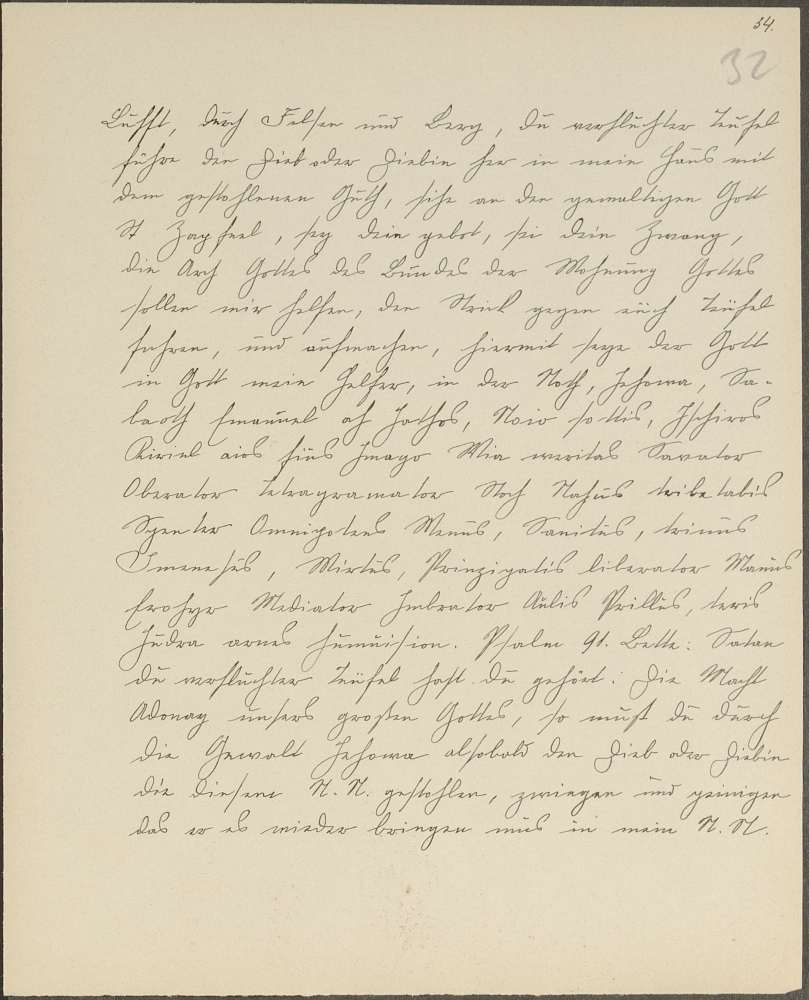 34.
32
Lufft, durch Felsen und Berg, du verfluchter Teufel
führe den Dieb oder Diebin her in mein Haus mit
dem gestohlenen Guth, sihe an den gewaltigen Gott
St Zapfeel, sey dein gebot, sei dein Zwang,
die Arch Gottes des Bundes der Wohnung Gottes
sollen mir helfen, den Strick gegen euch Teufel
fahren, und aufmachen, hiermit seye der Gott
in Gott mein Helfer, in der Noth, Jehowa, Sa-
baoth Emanuel ach Jothos, Noio sottis, Ischiros
Kiriel aios fius Imago Wia weritas Savator
Oberator Tetragramator Stoch Nahus tribetabis
Spenter Omnipotens Wenus, Sanitus, trinus
Imenesus, Wirtus, Prinzipatis liberator Manus
Erohyr Mediator Imbrator Aulis Prillus, teris
Hudra arnes humuision. Psalm 91. Bette: Satan
du verfluchter Teufel hast du gehört: Die Macht
Adonay unsers großen Gottes, so must du durch
die Gewalt Jehowa alsobald den Dieb oder Diebin
die diesem N. N. gestohlen, zwingen und peinigen
das er es wieder bringen mus in mein N. N.